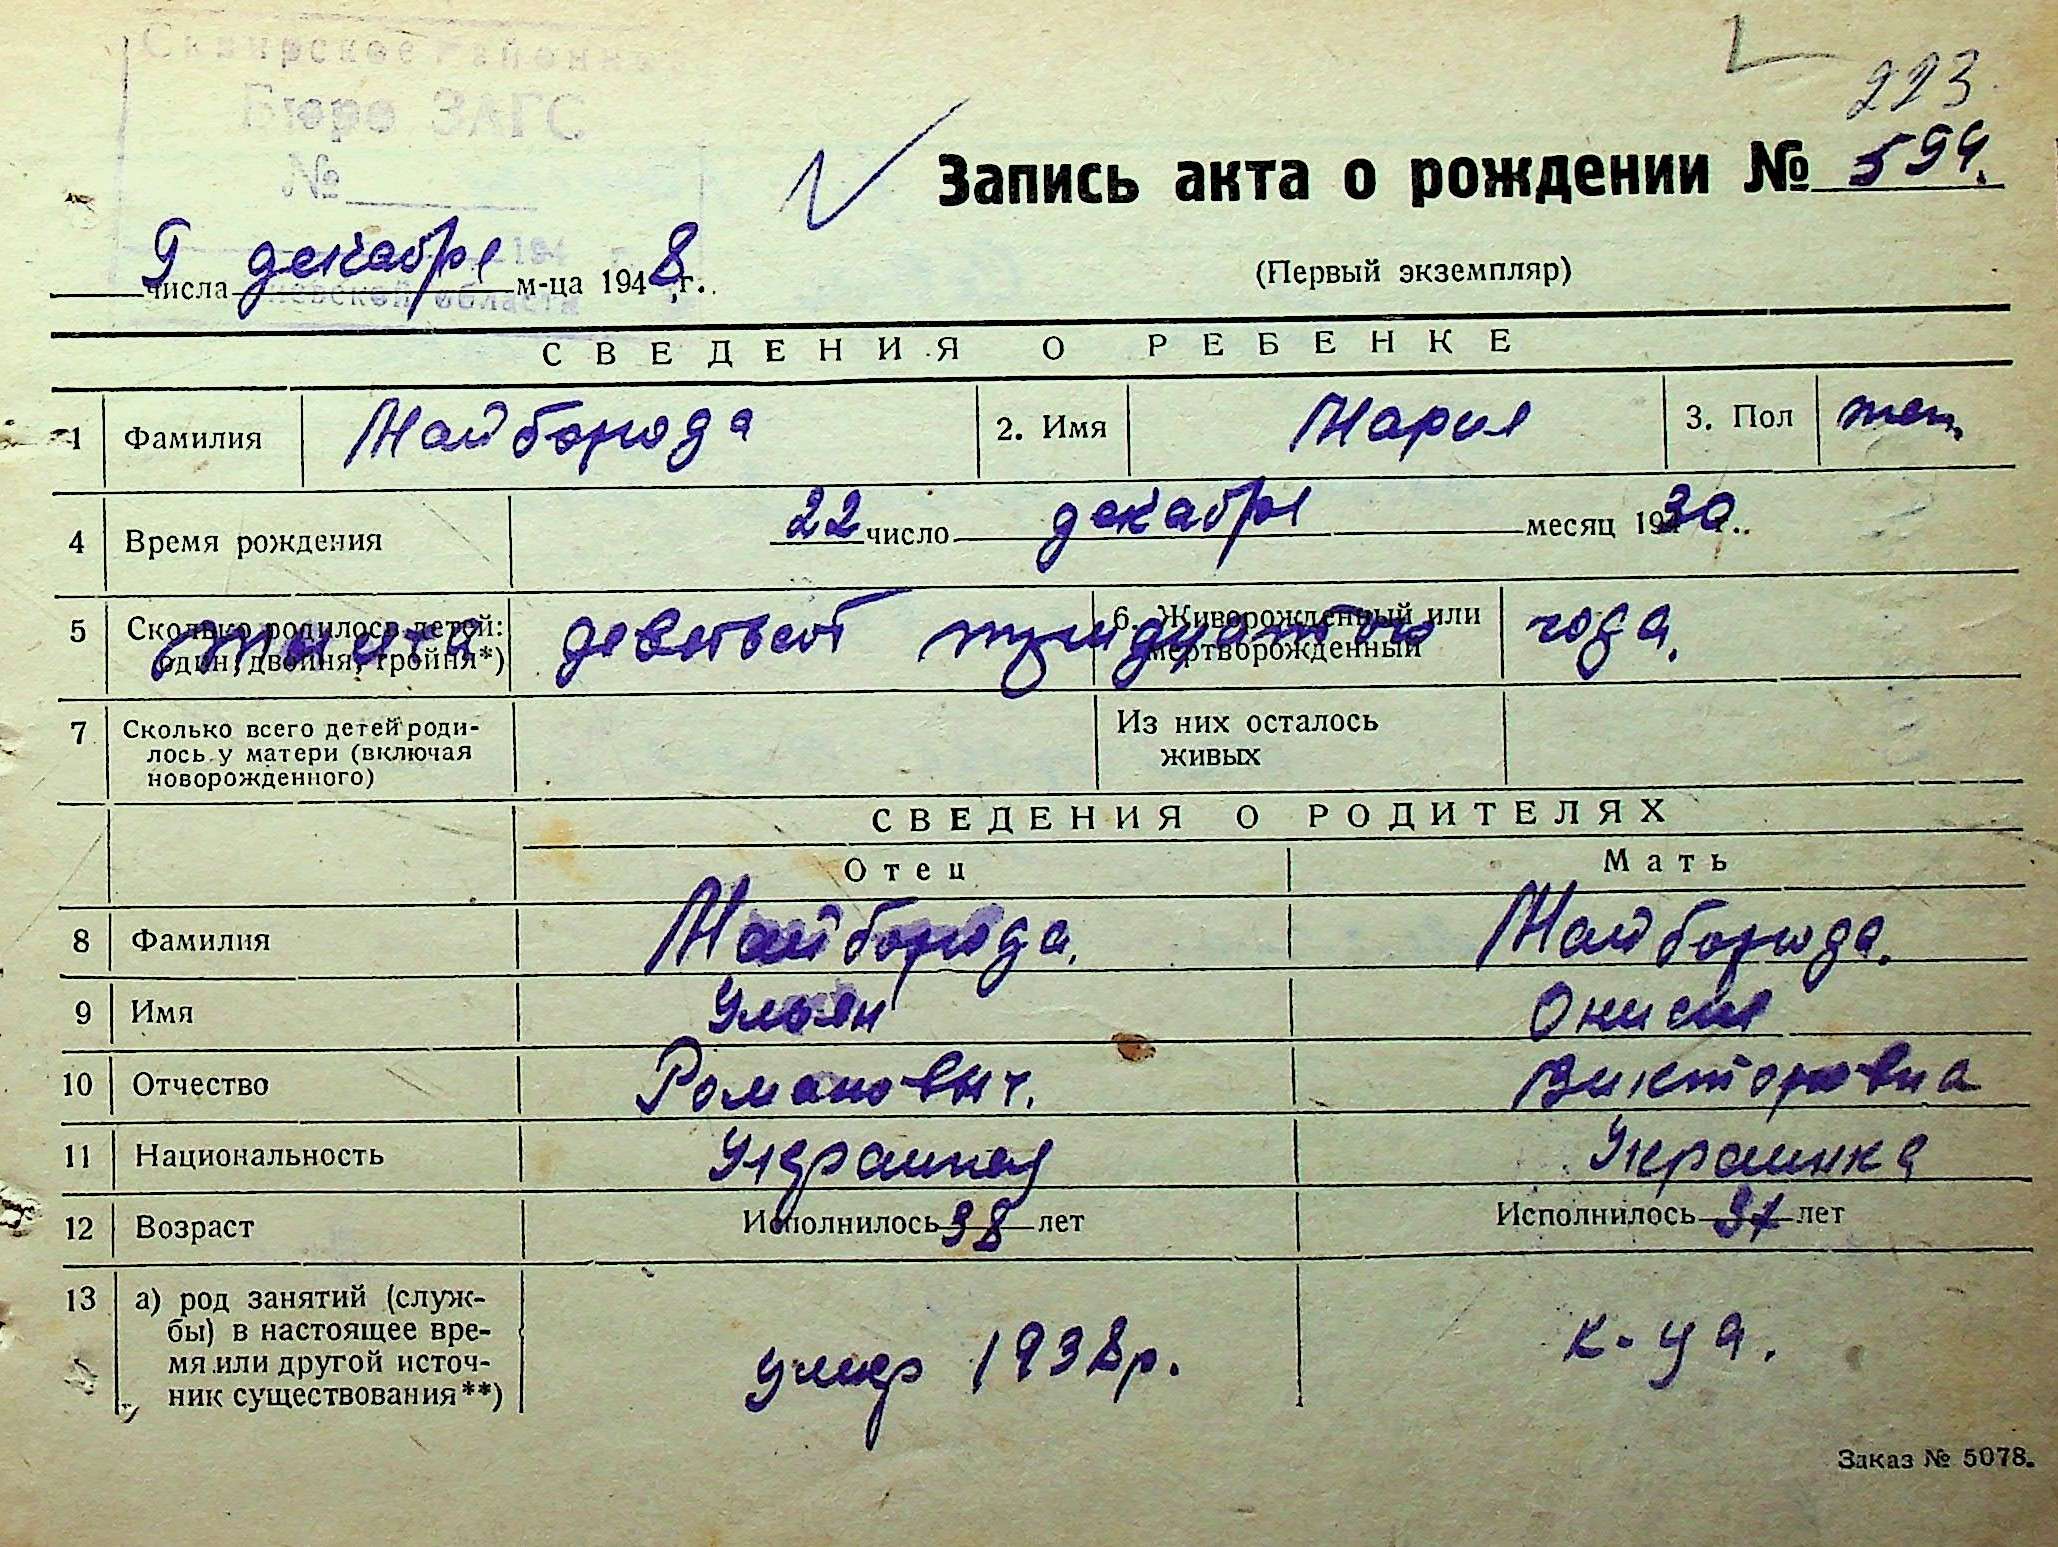 Сквирское Районное
Бюро ЗАГС
№
194 г.
Киевской области
223
Запись акта о рождении № 594.
9 числа декабря м-ца 1948 г.
(Первый экземпляр)
СВЕДЕНИЯ О РЕБЕНКЕ
1 Фамилия Майборода 2. Имя Мария 3. Пол жен.
4 Время рождения 22 число декабря месяц 1930 г.
5 Сколько родилось детей: один, двойня, тройня*) 6. Живорожденный или мертворожденный
тысяча девятьсот тридцатого года.
7 Сколько всего детей роди-
лось у матери (включая
новорожденного)
Из них осталось
живых
СВЕДЕНИЯ О РОДИТЕЛЯХ
Отец Мать
8 Фамилия Майборода. Майборода.
9 Имя Ульян Онисия
10 Отчество Романовыч. Викторовна
11 Национальность Украинец Украинка
12 Возраст Исполнилось 38 лет Исполнилось 37 лет
13 а) род занятий (служ-
бы) в настоящее вре-
мя или другой источ-
ник существования**)
умер 1938 р. к-ца.
Заказ № 5078.